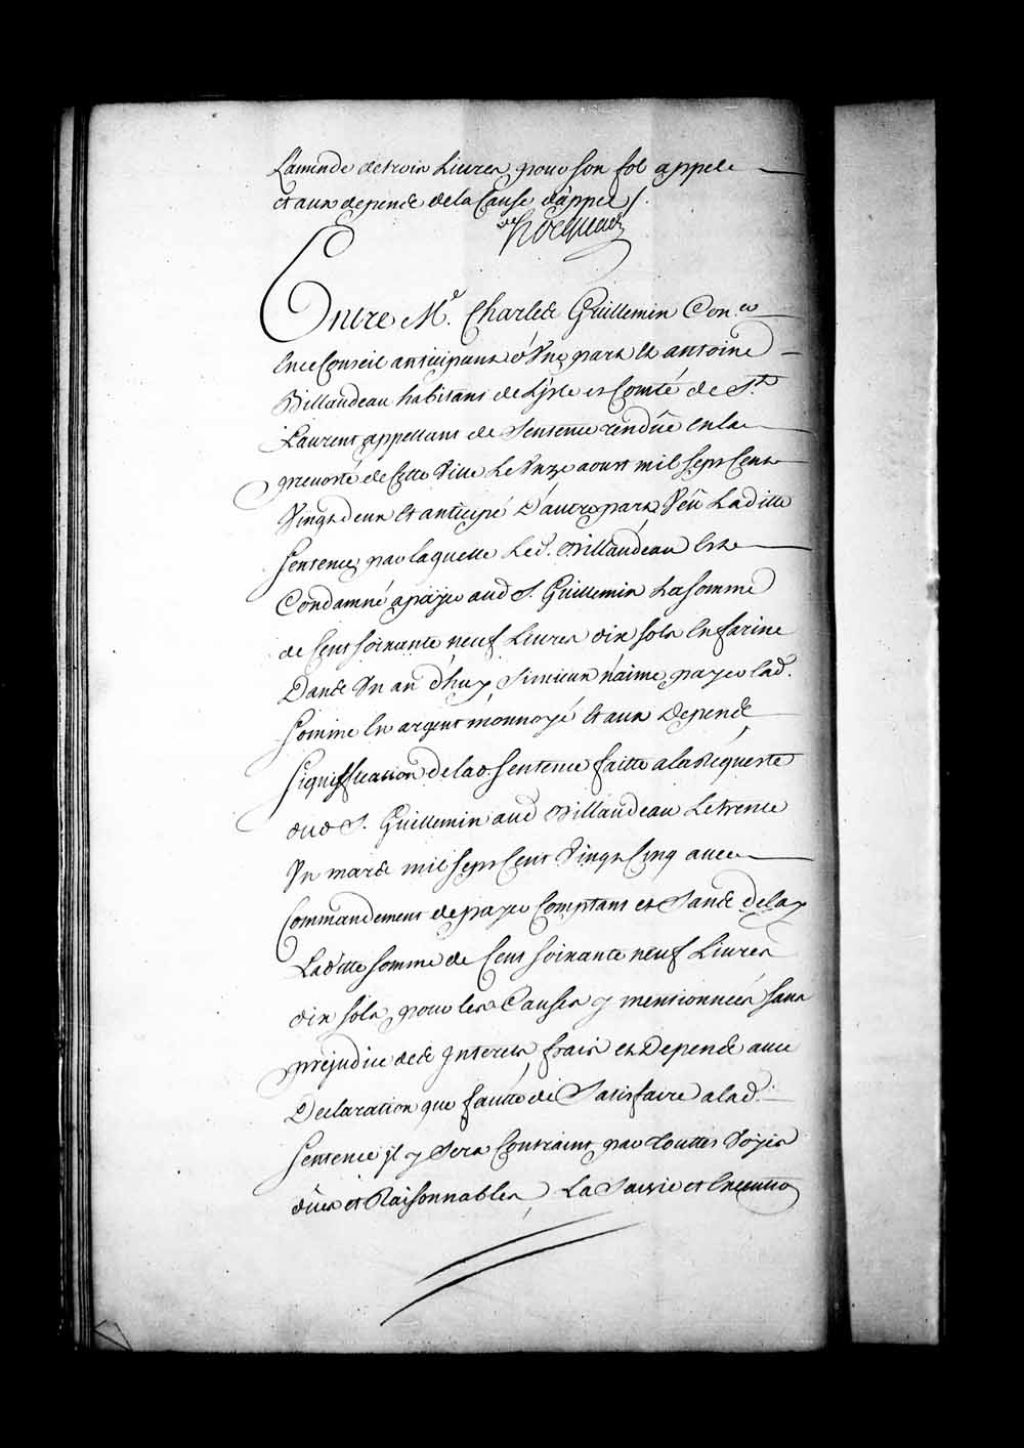 L'amende de trois Livres pour son fol appel
et aux depens de la Cause d'appel /.
Entre Mr. Charles Guillemin Con.er
En ce Conseil anticipant d'Une part Et antoine
Billaudeau habitant de L'jsle et Comté de St.
Laurent appellant de Sentence rendüe En la
prevosté de Cette Ville Le Unze aoust mil sept Cent
Vingt deux Et anticipé D'autre part, Veü Laditte
Sentence par laquelle Led. Billaudeau Est
Condamné a payer aud S. Guillemin La somme
de Cent soixante neuf Livres dix sols En farine
Dans Un an d'huy, Si mieux n'aime payer lad.
Somme En argent monnoyé Et aux Depens
Signiffication de lad. Sentence faitte a la Requeste
dud S. Guillemin aud Billaudeau Le trente
Un mars mil sept Cent Vingt Cinq avec
Commandement de payer Comptant et Sans delay
Laditte somme de Cent soixante neuf Livres
dix sols, pour les Causes y mentionnées sans
prejudice des Interets, frais et Depens avec
Declaration que faute de Satisfaire a lad.
Sentence jl y Sera Contraint par touttes Voyes
dües et Raisonnables, La Saisie et Execution